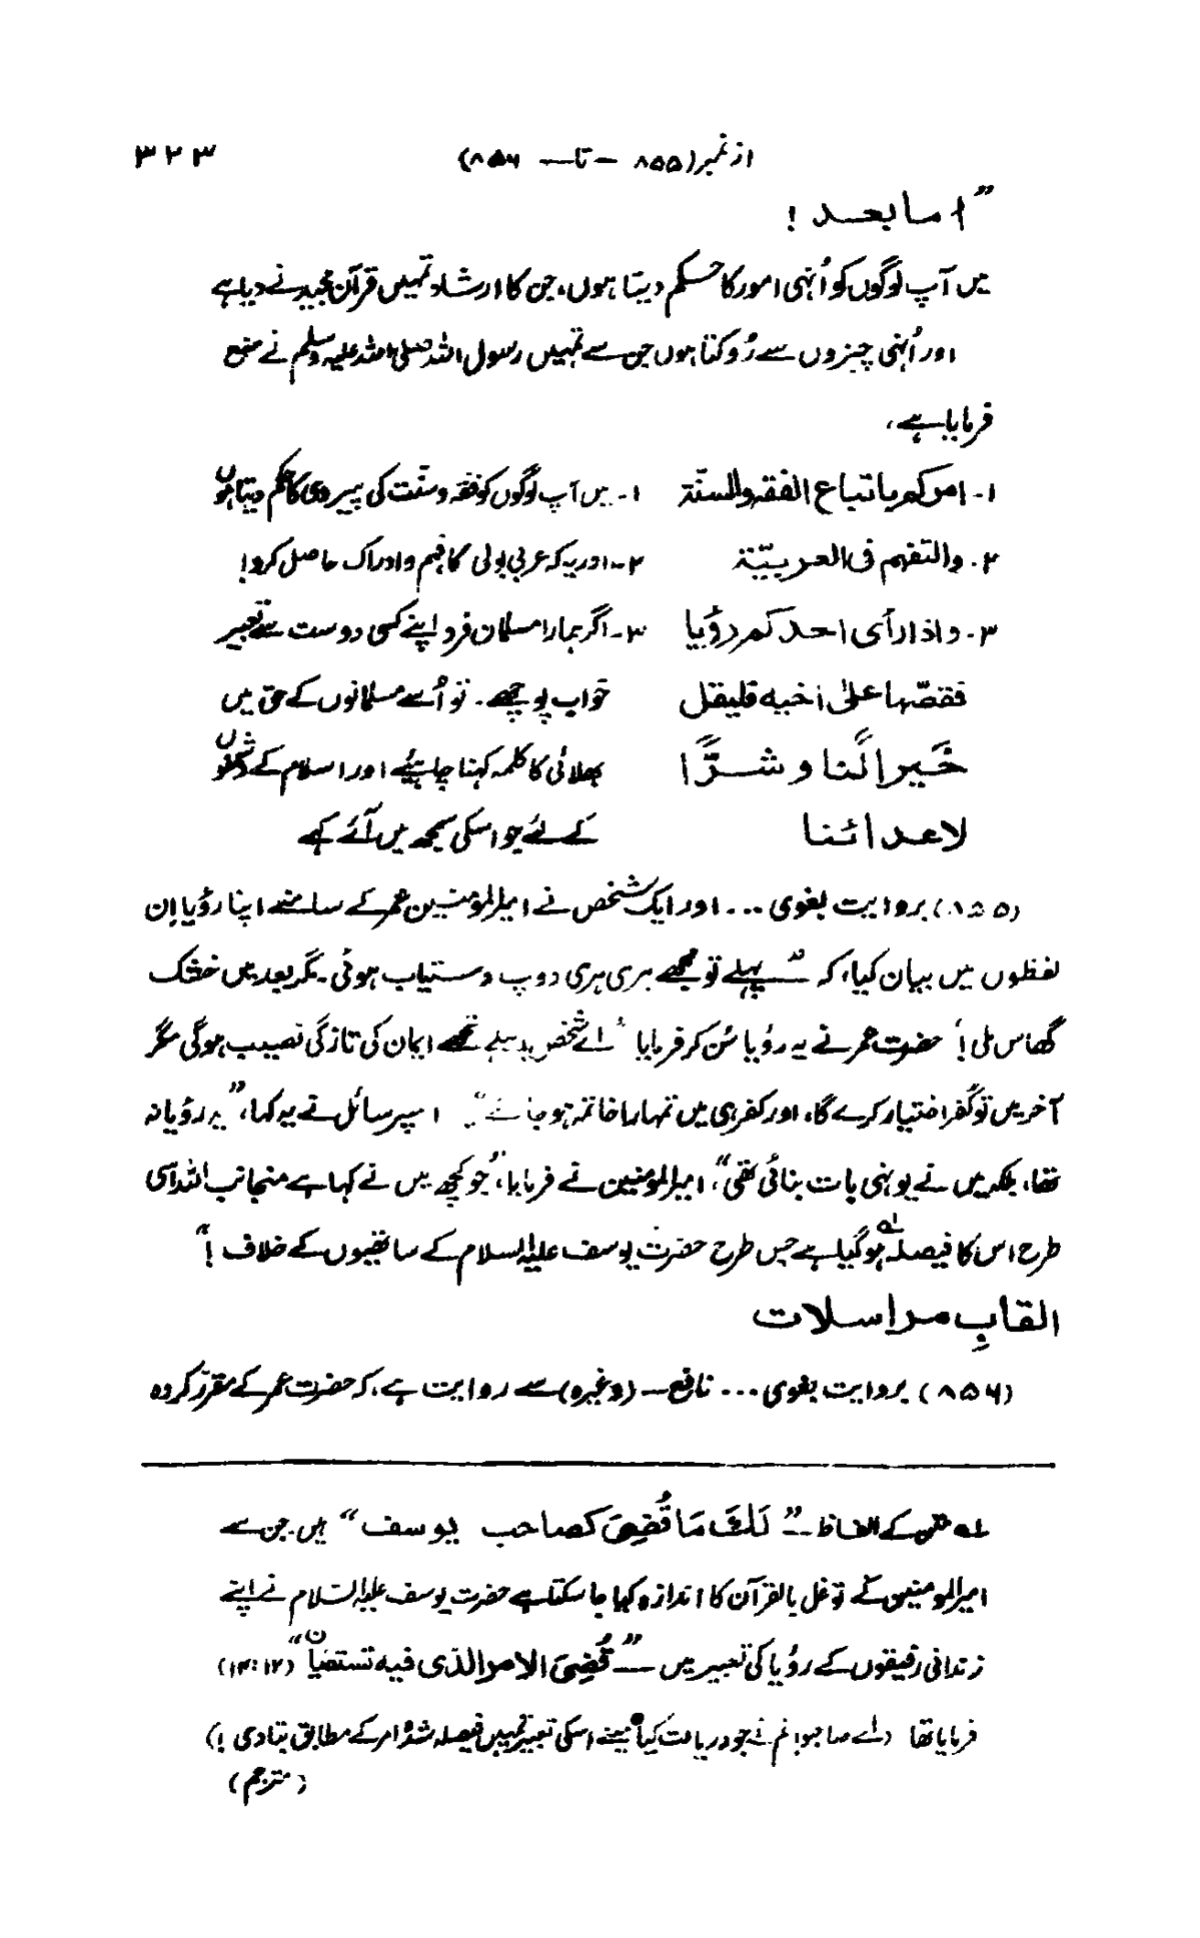 از نمبر (۸۵۵ — تا — ۸۵۶) ۳۲۳
"اما بعد !
میں آپ لوگوں کو اُنہی امور کا حکم دیتا ہوں، جن کا ارشاد تمہیں قرآن مجید نے دیا ہے
اور اُنہی چیزوں سے رُوکتا ہوں جن سے تمہیں رسول اللہ صلی اللہ علیہ وسلم نے منع
فرمایا ہے،
۱- امرکم باتباع الفقہ والسنّۃ ۱- میں آپ لوگوں کو فقہ و سنّت کی پیروی کا حکم دیتا ہوں
۲- والتفہم فی العربیّۃ ۲- اور یہ کہ عربی بولی کا فہم و ادراک حاصل کرو!
۳- واذا رأی احدکم رؤیا ۳- اگر ہمارا مسلمان فرد اپنے کسی دوست سے تعبیر
فقصّہا علیٰ اخیہ فلیقل خواب پوچھے۔ تو اُسے مسلمانوں کے حق میں
خَیرا لَّنا و شرًّا بھلائی کا کلمہ کہنا چاہیئے اور اسلام کے دشمنوں
لاعدائنا کے لئے جو اسکی سمجھ میں آئے کہے
(۸۵۵) بروایت بغوی ... اور ایک شخص نے امیرالمؤمنین عمر کے سامنے اپنا رؤیا اِن
لفظوں میں بیان کیا، کہ "پہلے تو مجھے ہری ہری دوپ دستیاب ہوئی۔ مگر بعد میں خشک
گھاس ملی!" حضرت عمر نے یہ رؤیا سُن کر فرمایا "اے شخص پہلے تجھے ایمان کی تازگی نصیب ہوگی مگر
آخر میں تو کُفر اختیار کرے گا، اور کفر ہی میں تمہارا خاتمہ ہو جائے"۔ اسپر سائل نے یہ کہا، "یہ رؤیا نہ
تھا، بلکہ میں نے یونہی بات بنائی تھی"، امیرالمؤمنین نے فرمایا، "جو کچھ میں نے کہا ہے منجانب اللہ اسی
طرح اس کا فیصلہ لہ ہوگیا ہے جس طرح حضرت یوسف علیہ السلام کے ساتھیوں کے خلاف!"
القابِ مراسلات
(۸۵۶) بروایت بغوی ... نافع — (وغیرہ) سے روایت ہے، کہ حضرت عمر کے مقرر کردہ
لہ متن کے الفاظ — "لَکَ مَا قُضِیَ کصاحب یوسف" ہیں۔ جن سے
امیرالمومنین کے توغل بالقرآن کا اندازہ کیا جا سکتا ہے حضرت یوسف علیہ السلام نے اپنے
زندانی رفیقوں کے رؤیا کی تعبیر میں — "قُضِیَ الامر الذی فیہ تستفتیان" (۱۲:۴۱)
فرمایا تھا (اے صاحبو! تم نے جو دریافت کیا مینے اسکی تعبیر تمہیں فیصلہ شدہ امر کے مطابق بتا دی!)
(مترجم)